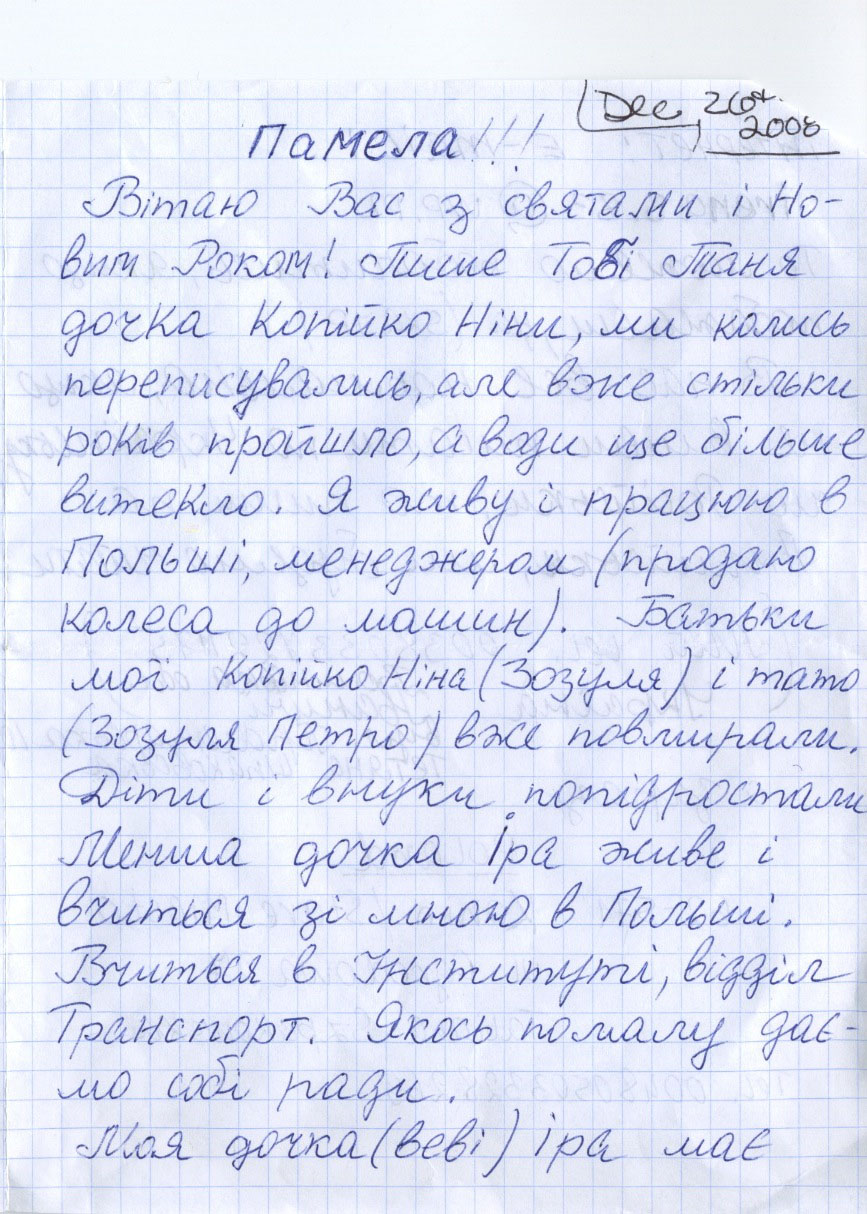 Dec, 26th.
2008
Памела!!!
Вітаю Вас з святами і Но-
вим Роком! Пише Тобі Таня
дочка Копійко Ніни, ми колись
переписувались, але вже стільки
років пройшло, а води ще більше
витекло. Я живу і працюю в
Польші, менеджером (продаю
колеса до машин). Батьки
мої Копійко Ніна (Зозуля) і тато
(Зозуля Петро) вже повмирали.
Діти і внуки попідростали
Менша дочка Іра живе і
вчиться зі мною в Польші.
Вчиться в Інституті, відділ
Транспорт. Якось помалу дає-
мо собі ради.
Моя дочка (веві) Іра має